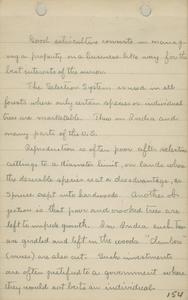 Good silviculture consists in manag-
ing a property in a business like way for the
best interests of the owner.
The Selection System is used in all
forests where only certain species or individual
trees are marketable. Thus in India and
many parts of the U.S.
Reproduction is often poor after selection
cuttings to a diameter limit, on lands where
the desirable species is at a disadvantage, as
spruce swept into hardwoods. Another ob-
jection is that poor and crooked trees are
left to impede growth. In India such trees
are girdled and left in the woods. "Climbers"
(vines) are also cut. Such investments
are often justified to a government where
they would not be to an individual.
154